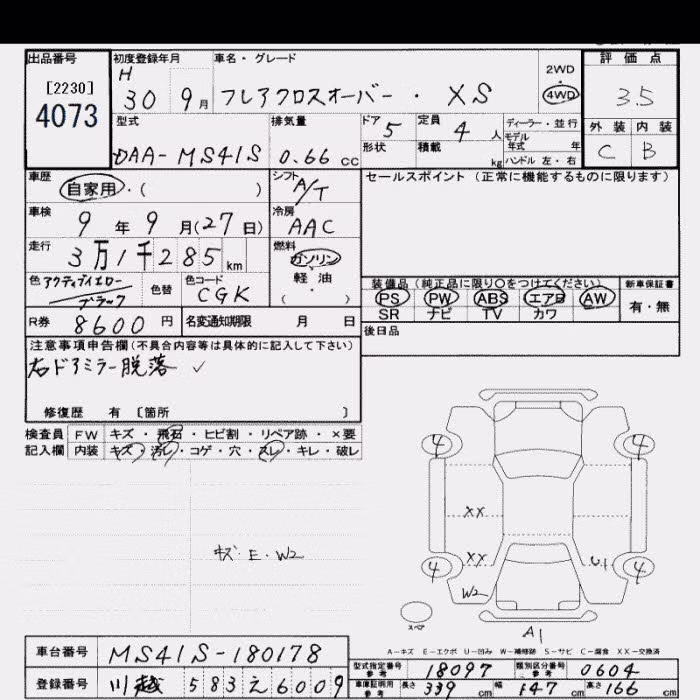 出品番号
[2230]
4073
初度登録年月
H 30 9月
車名・グレード
フレアクロスオーバー・ XS
2WD
・
4WD
評価点
3.5
外装 内装
C B
型式
DAA-MS41S
排気量
0.66 cc
ドア 5
定員 4 人
形状
積載 kg
ディーラー・並行
モデル年式 年
ハンドル 左・右
車歴
自家用・( )
シフト
A/T
車検
9年9月(27日)
冷房
AAC
走行
3万1千285 km
燃料
ガソリン
軽油
( ・ )
色 アクティブイエロー
ブラック
色替
色コード
CGK
R券 8600円
名変通知期限 月 日
セールスポイント (正常に機能するものに限ります)
装備品 (純正品に限り〇をつけてください)
PS PW ABS エアB AW
SR ナビ TV カワ
新車保証書
有・無
後日品
注意事項申告欄(不具合内容等は具体的に記入して下さい)
右ドアミラー脱落 ✓
修復歴 有 〔箇所 〕
検査員 FW キズ・飛石・ヒビ割・リペア跡・×要
記入欄 内装 キズ・汚レ・コゲ・穴・スレ・キレ・破レ
キズ・E・W2
4 4
XX
XX U1
4 4
W2
スペア
A1
A-キズ E-エクボ U-凹み W-補修跡 S-サビ C-腐食 XX-交換済
車台番号 MS41S-180178
登録番号 川越 583 え 6009
型式指定番号 参考 18097
類別区分番号 参考 0604
車庫証明用 参考 長さ 339 cm 幅 147 cm 高さ 166 cm